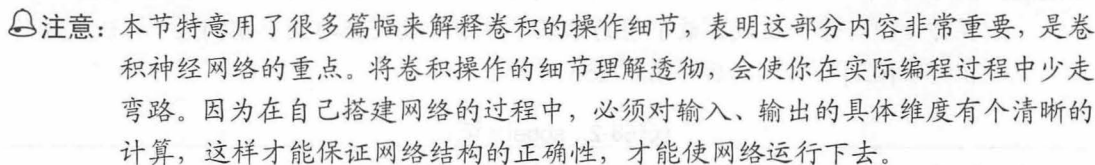 注意：本节特意用了很多篇幅来解释卷积的操作细节，表明这部分内容非常重要，是卷
积神经网络的重点。将卷积操作的细节理解透彻，会使你在实际编程过程中少走
弯路。因为在自己搭建网络的过程中，必须对输入、输出的具体维度有个清晰的
计算，这样才能保证网络结构的正确性，才能使网络运行下去。